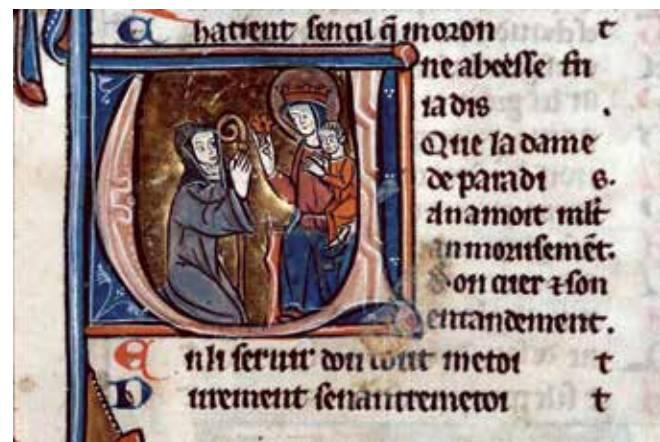 E hacient sencil q̃ moron t
U ne abeesse fu
iadis .
Que la dame
de paradi s.
Anamoit ml̃t
an morusemẽt.
Son cuer ⁊ son
entandement.
E n li seruir dou tout metoi t
D urement senantremetoi t